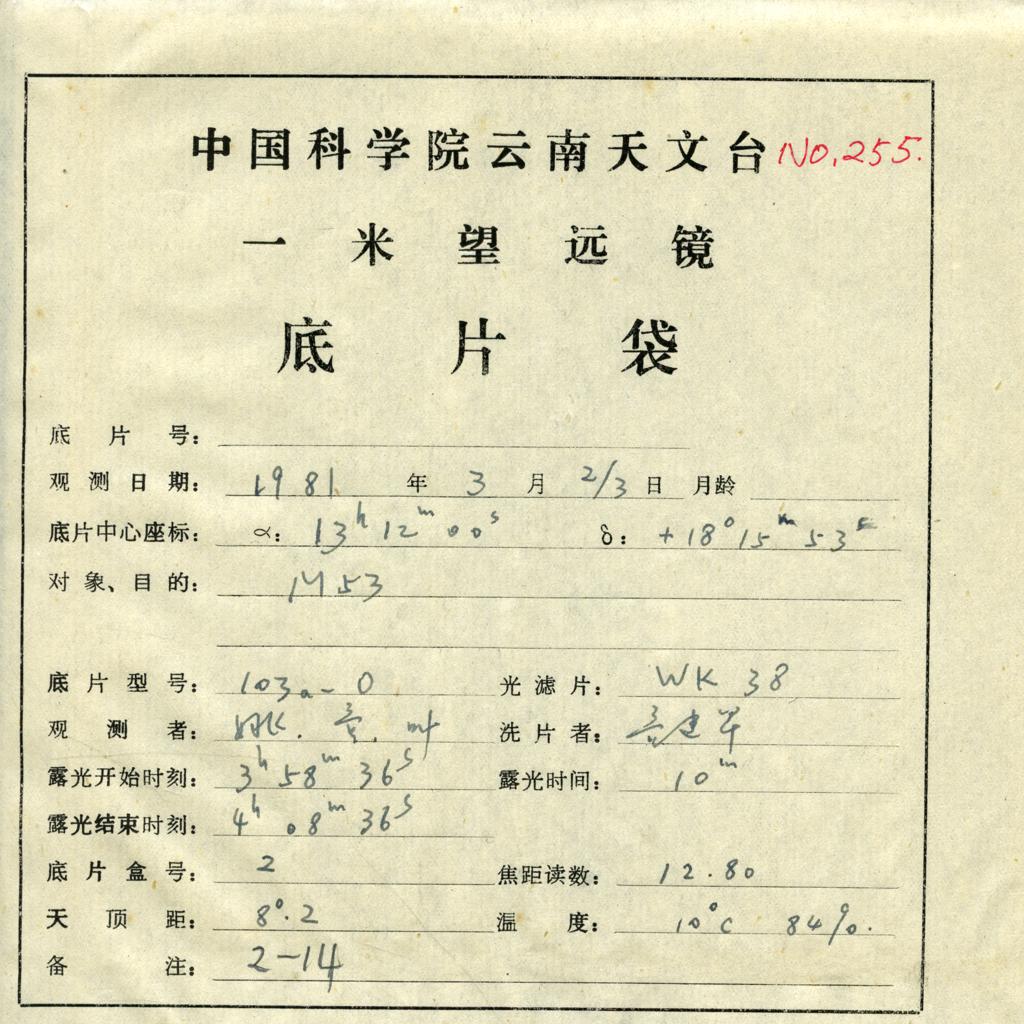 中国科学院云南天文台 No.255.
一米望远镜
底片袋
底片号：
观测日期： 1981 年 3 月 2/3 日 月龄
底片中心座标： α： 13h 12m 00s δ： +18° 15m 53s
对象、目的： M53
底片型号： 103a-O 光滤片： WK 38
观测者： 姚. 叶 洗片者： 建军
露光开始时刻： 3h 58m 36s 露光时间： 10m
露光结束时刻： 4h 08m 36s
底片盒号： 2 焦距读数： 12.80
天顶距： 8°.2 温度： 10°C 84%.
备注： 2-14